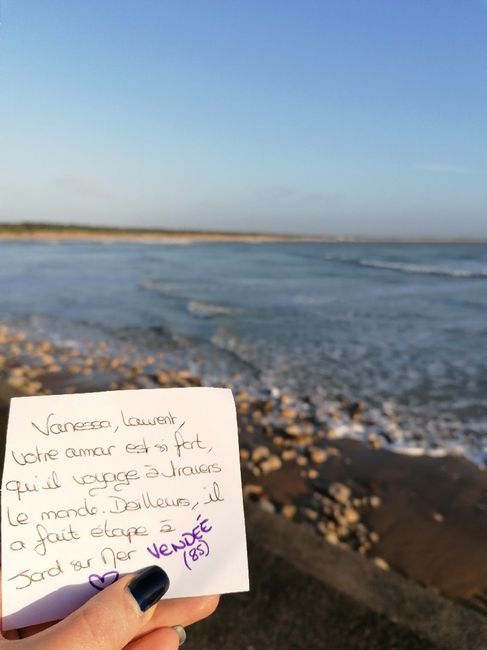 Vanessa, Laurent,
votre amour est si fort,
qu'il voyage à travers
le monde. D'ailleurs, il
a fait étape à
Jard sur Mer VENDÉE
(85)